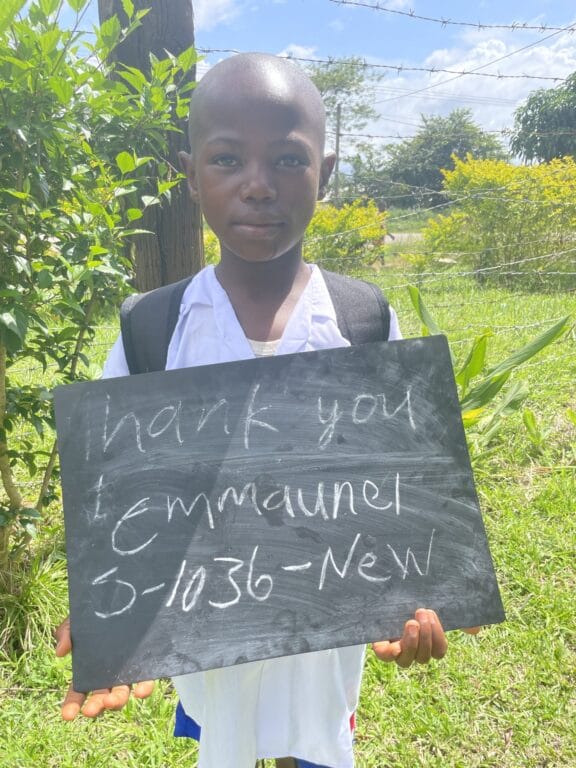 Thank you
Emmaunel
S-1036-New